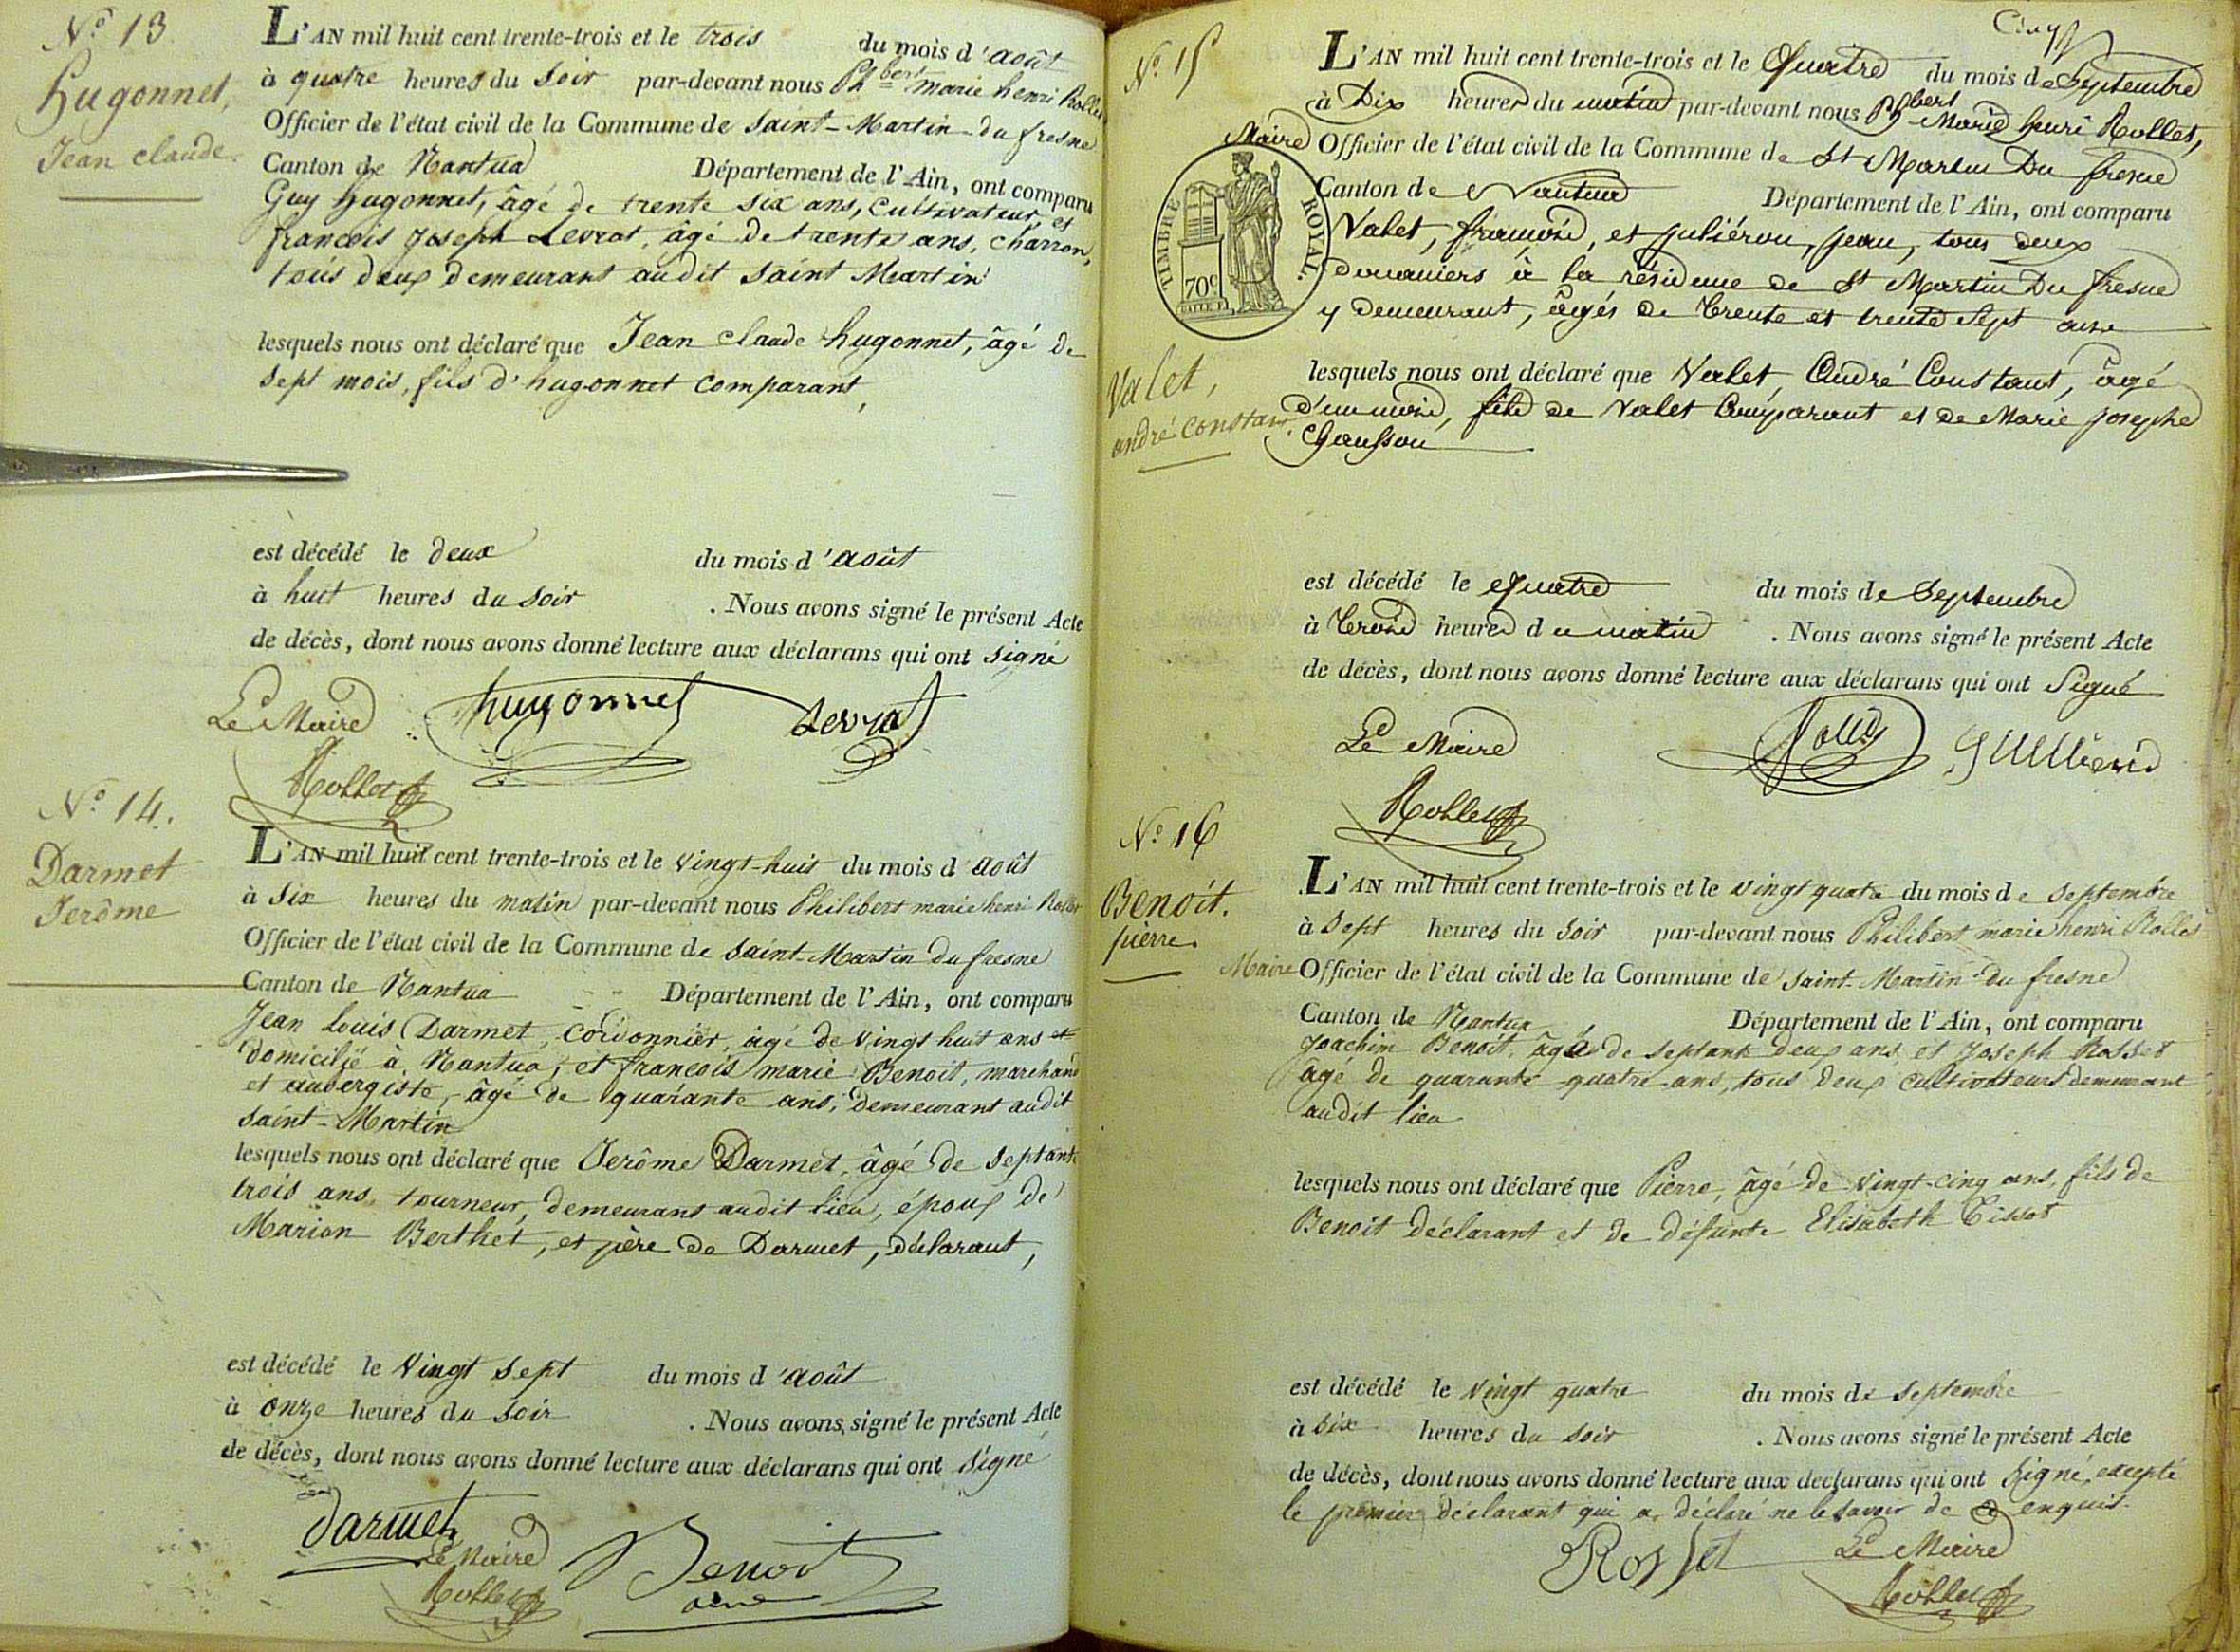 N.º 13
Hugonnet,
Jean claude.
L'AN mil huit cent trente-trois et le trois du mois d'août
à quatre heures du soir par-devant nous Phbert marie henri Rollet
Officier de l'état civil de la Commune de saint-Martin-du fresne
Canton de Nantua Département de l'Ain, ont comparu
Guy hugonnet, âgé de trente six ans, cultivateur, et
françois Joseph Levrat, âgé de trente ans, charron,
tous deux demeurant audit saint Martin
lesquels nous ont déclaré que Jean claude hugonnet, âgé de
sept mois, fils d'hugonnet comparant,
est décédé le deux du mois d'août
à huit heures du soir . Nous avons signé le présent Acte
de décès, dont nous avons donné lecture aux déclarans qui ont signé
Le Maire hugonnet Levrat
Rollet
N.º 14.
Darmet
Jerôme
L'AN mil huit cent trente-trois et le vingt-huit du mois d'août
à six heures du matin par-devant nous Philibert marie henri Rollet
Officier de l'état civil de la Commune de saint-Martin du fresne
Canton de Nantua Département de l'Ain, ont comparu
Jean Louis Darmet, cordonnier, âgé de vingt huit ans et
domicilié à Nantua, et françois marie Benoit, marchand
et aubergiste, âgé de quarante ans, demeurant audit
saint-Martin
lesquels nous ont déclaré que Jerôme Darmet, âgé de septante
trois ans, tourneur, demeurant audit lieu, époux de
Marion Berthet, et père de Darmet, déclarant,
est décédé le vingt sept du mois d'août
à onze heures du soir . Nous avons signé le présent Acte
de décès, dont nous avons donné lecture aux déclarans qui ont signé
Darmet
Le Maire Benoit
Rollet
N.º 15
Valet,
andré constant.
TIMBRE ROYAL.
70c
L'AN mil huit cent trente-trois et le Quatre du mois de Septembre
à Dix heures du matin par-devant nous Phbert Marie henri Rollet,
Maire Officier de l'état civil de la Commune de St Martin Du fresne
Canton de Nantua Département de l'Ain, ont comparu
Valet, françois, et Julliéron, jean, tous deux
douaniers à la résidence de St Martin Du fresne
y demeurant, âgés de trente et trente Sept ans
lesquels nous ont déclaré que Valet, André Constant, âgé
d'un mois, fils de Valet Comparant et de Marie josephe
Chausson
est décédé le quatre du mois de Septembre
à trois heures du matin . Nous avons signé le présent Acte
de décès, dont nous avons donné lecture aux déclarans qui ont Signé
Le Maire
Rollet
N.º 16
Benoit.
pierre.
L'AN mil huit cent trente-trois et le vingt quatre du mois de septembre
à sept heures du soir par-devant nous Philibert marie henri Rollet
Maire Officier de l'état civil de la Commune de saint-Martin-du fresne
Canton de Nantua Département de l'Ain, ont comparu
Joachim Benoit, âgé de septante deux ans, et Joseph Rosset
âgé de quarante quatre ans, tous deux cultivateurs demeurant
audit lieu
lesquels nous ont déclaré que Pierre, âgé de vingt-cinq ans, fils de
Benoit déclarant et de défunte Elisabeth Tissot
est décédé le vingt quatre du mois de septembre
à six heures du soir . Nous avons signé le présent Acte
de décès, dont nous avons donné lecture aux déclarans qui ont signé, excepté
le premier déclarant qui a déclaré ne le savoir de ce enquis.
Rosset Le Maire
Rollet